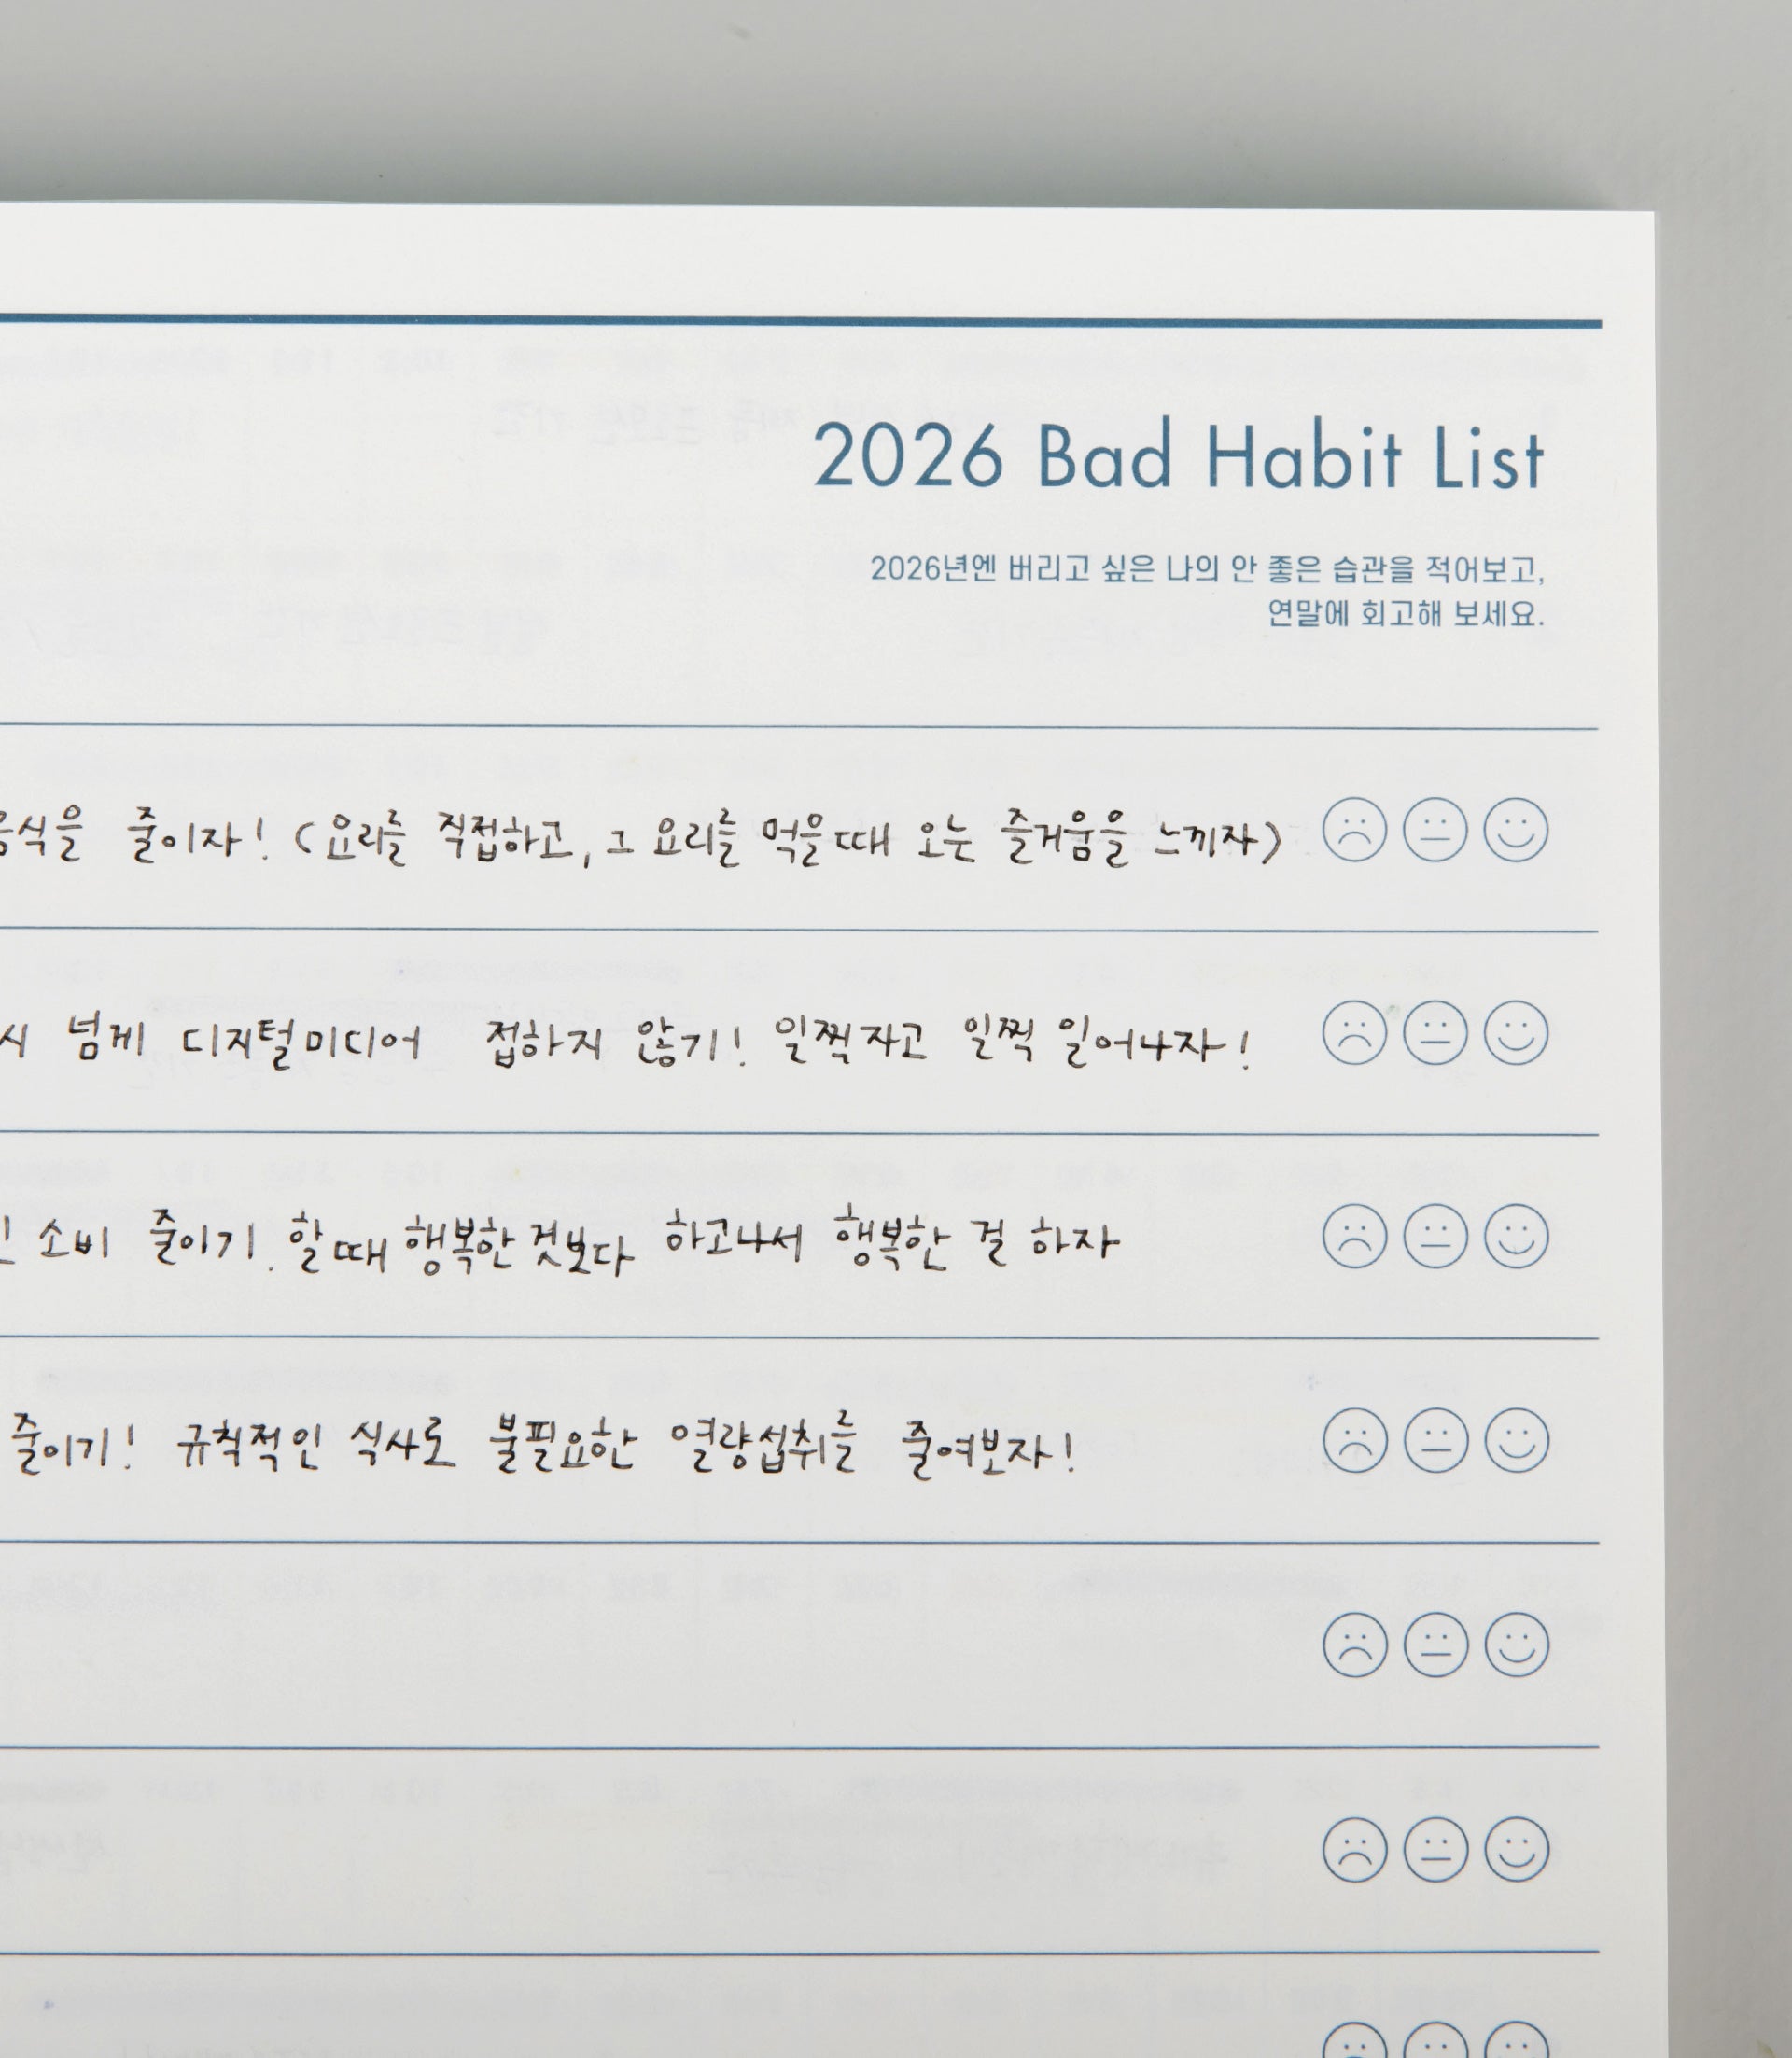 2026 Bad Habit List
2026년엔 버리고 싶은 나의 안 좋은 습관을 적어보고,
연말에 회고해 보세요.
음식을 줄이자! (요리를 직접하고, 그 요리를 먹을때 오는 즐거움을 느끼자)
시 넘게 디지털미디어 접하지 않기! 일찍자고 일찍 일어나자!
소비 줄이기. 할때 행복한것보다 하고나서 행복한 걸 하자
줄이기! 규칙적인 식사로 불필요한 열량섭취를 줄여보자!